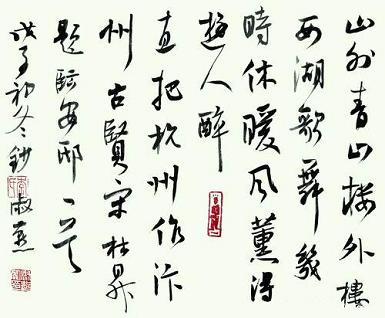 山外青山楼外樓
西湖歌舞幾
時休暖风薰得
遊人醉
直把杭州作汴
州古賢宋林昇
题临安邸一首
戊子初冬鈔淑燕